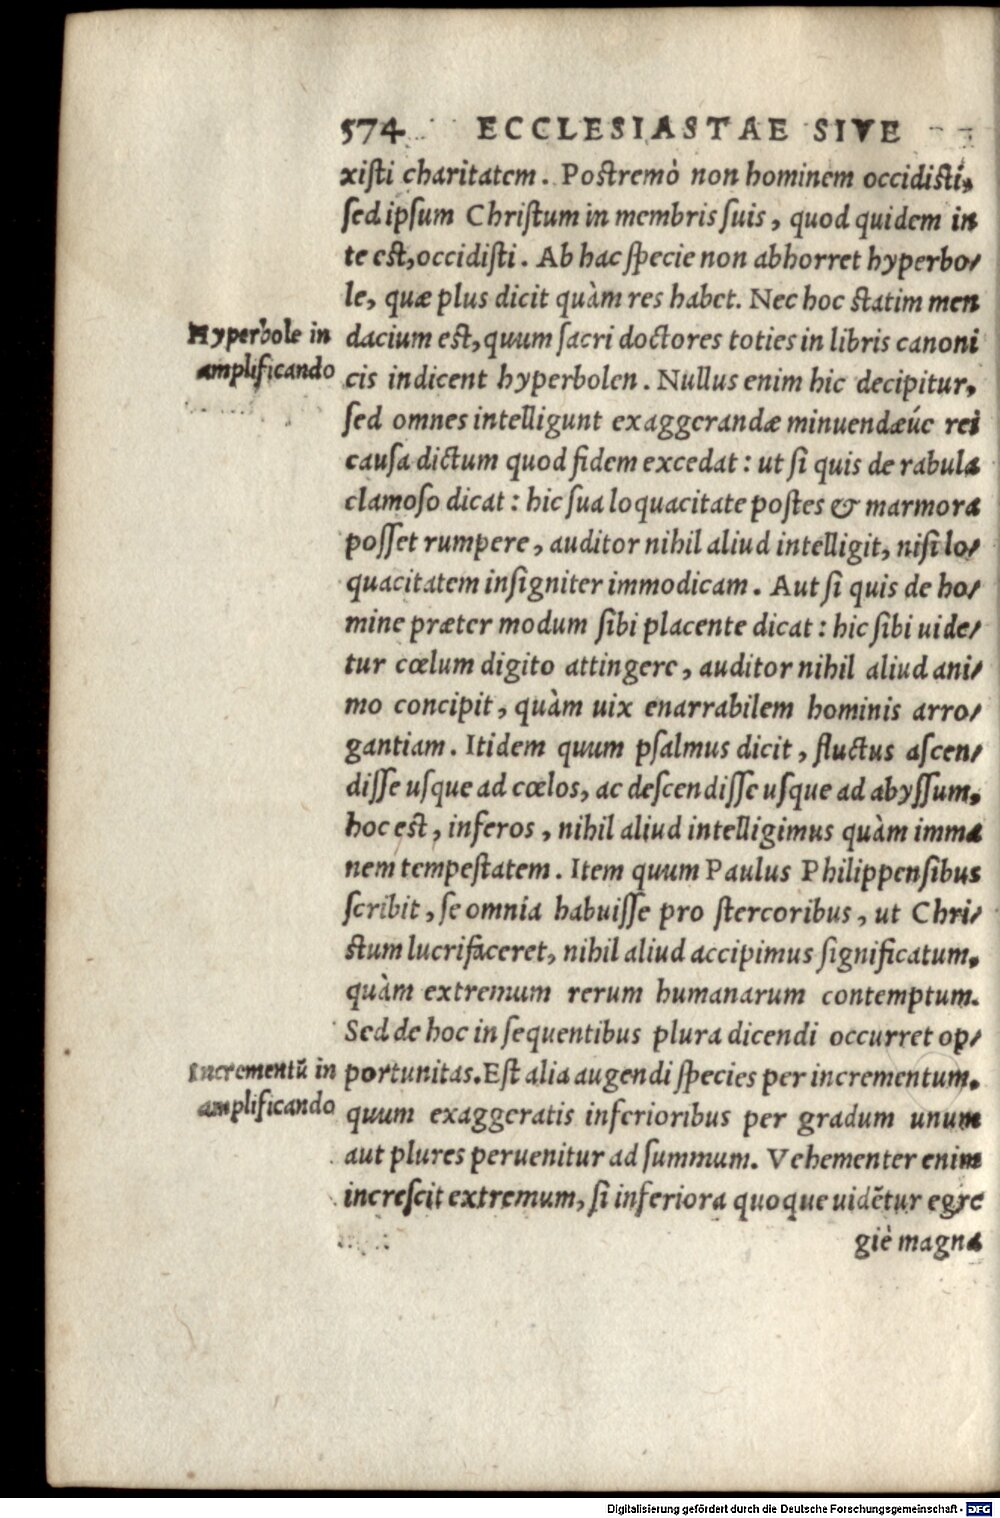 574 ECCLESIASTAE SIVE
xisti charitatem. Postremò non hominem occidisti,
sed ipsum Christum in membris suis, quod quidem in
te est, occidisti. Ab hac specie non abhorret hyperbo/
le, quæ plus dicit quàm res habet. Nec hoc statim men
Hyperbole in
amplificando
dacium est, quum sacri doctores toties in libris canoni
cis indicent hyperbolen. Nullus enim hic decipitur,
sed omnes intelligunt exaggerandæ minuendæúe rei
causa dictum quod fidem excedat: ut si quis de rabula
clamoso dicat: hic sua loquacitate postes & marmora
posset rumpere, auditor nihil aliud intelligit, nisi lo/
quacitatem insigniter immodicam. Aut si quis de ho/
mine præter modum sibi placente dicat: hic sibi uide/
tur cœlum digito attingere, auditor nihil aliud ani/
mo concipit, quàm uix enarrabilem hominis arro/
gantiam. Itidem quum psalmus dicit, fluctus ascen/
disse usque ad cœlos, ac descendisse usque ad abyssum,
hoc est, inferos, nihil aliud intelligimus quàm imma
nem tempestatem. Item quum Paulus Philippensibus
scribit, se omnia habuisse pro stercoribus, ut Chri/
stum lucrifaceret, nihil aliud accipimus significatum,
quàm extremum rerum humanarum contemptum.
Sed de hoc in sequentibus plura dicendi occurret op/
Incrementū in
amplificando
portunitas. Est alia augendi species per incrementum,
quum exaggeratis inferioribus per gradum unum
aut plures peruenitur ad summum. Vehementer enim
increscit extremum, si inferiora quoque uidētur egre
giè magna
Digitalisierung gefördert durch die Deutsche Forschungsgemeinschaft - DFG